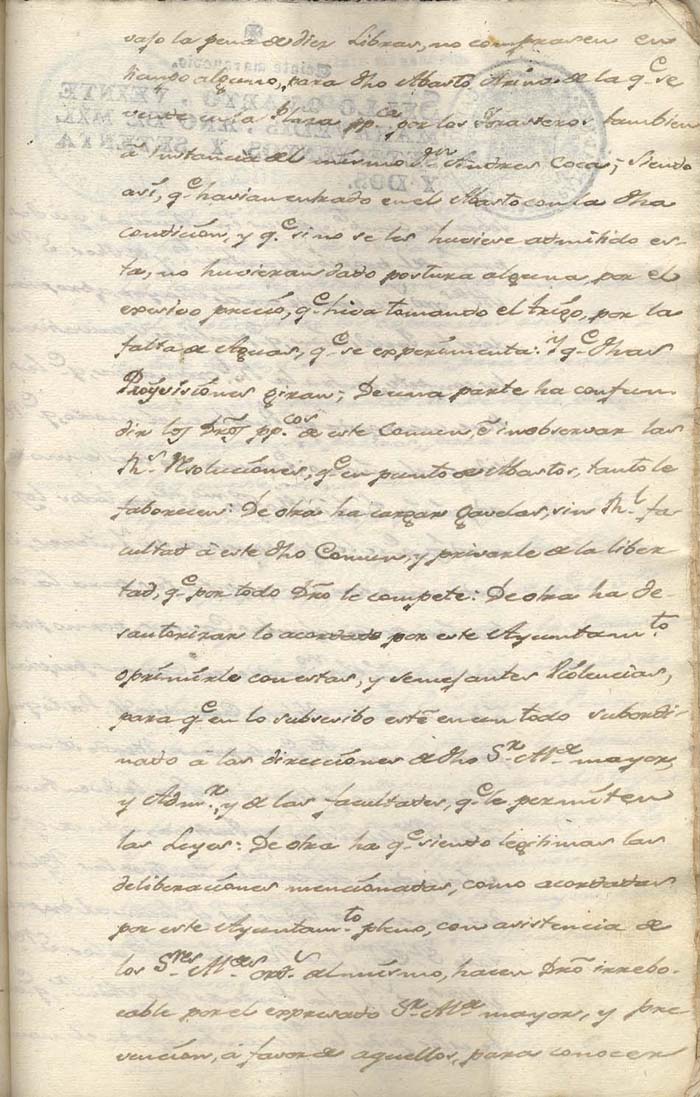 vajo la pena de diez Libras, no comprasen en
tiempo alguno, para dho Abasto Arina de la q.e se
vende en la Plaza pp.ca por los forasteros tambien
â instancia del mismo D.n Andres Cocas; siendo
asi, q.e havian entrado en el Abasto con la dha
condicion, y q.e si no se les huviese admitido es-
ta, no huvieran dado postura alguna, por el
excesivo precio, q.e hiva tomando el trigo, por la
falta de Aguas, q.e se experimenta: Y q.e dhas
Provisiones giran; De una parte ha confun
dir los Dros pp.cos de este Comun, ê inobservar las
R.s Resoluciones, q.e en punto de Abastos, tanto le
faborecen: De otra ha cargar Gavelas, sin R.l fa-
cultad â este dho Comun, y privarle de la liber-
tad, q.e por todo Dro le compete: De otra ha de-
sautorizar lo acordado por este Ayuntam.to
oprimirle con estas, y semejantes Violencias,
para q.e en lo subscribo este en un todo subordi-
nado â las direcciones de dho S.r Al.e mayor,
y Adm.r y de las facultades, q.e le permiten
las Leyes: De otra ha q.e siendo legitimas las
deliberaciones mencionadas, como acordadas
por este Ayuntam.to pleno, con asistencia de
los S.res Al.des ord.s del mismo, hacen Dro irrebo-
cable por el expresado S.r Al.e mayor, y pre
vencion, â favor de aquellos, para conocer